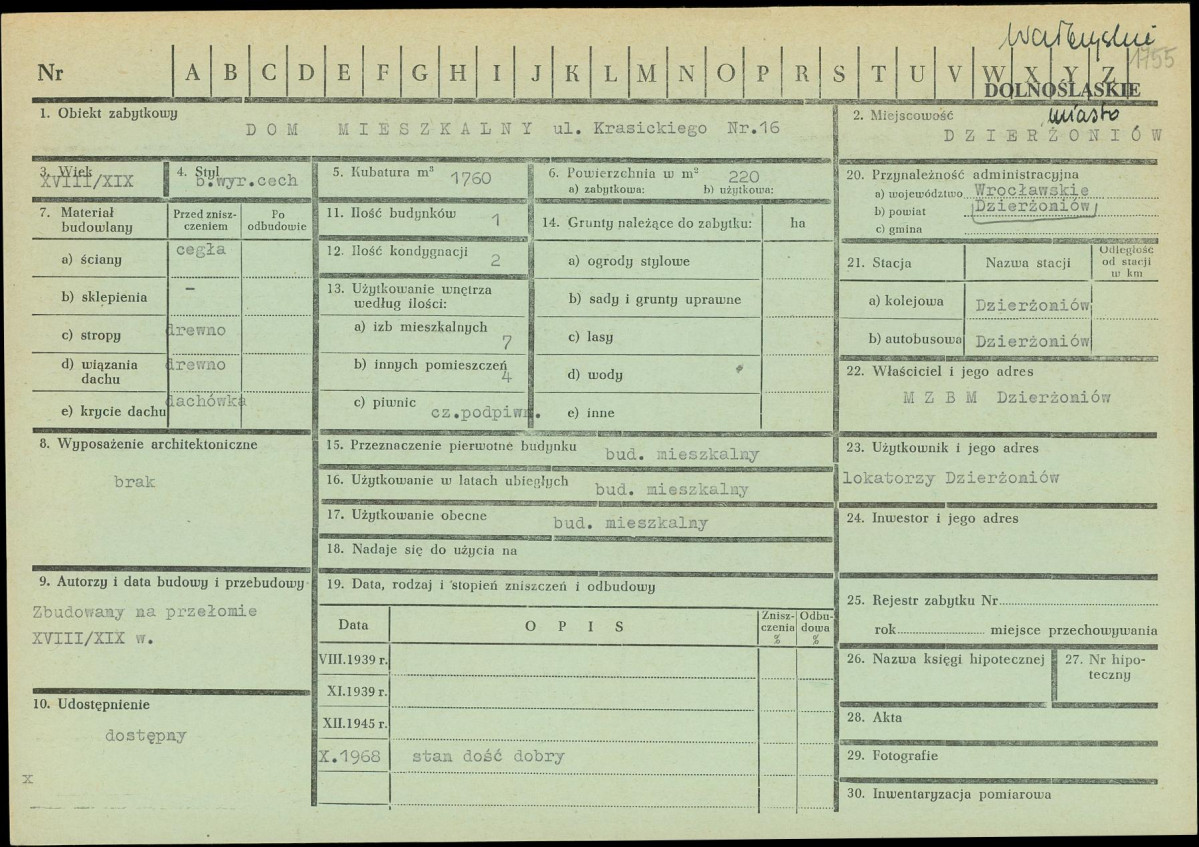 Wałbrzyskie
1755
Nr A B C D E F G H I J K L M N O P R S T U V W X Y Z
DOLNOŚLĄSKIE
1. Obiekt zabytkowy
DOM MIESZKALNY ul. Krasickiego Nr.16
2. Miejscowość
miasto
DZIERŻONIÓW
3. Wiek
XVIII/XIX
4. Styl
b.wyr.cech
5. Kubatura m³ 1760
6. Powierzchnia w m² 220
a) zabytkowa: b) użytkowa:
20. Przynależność administracyjna
a) województwo Wrocławskie
b) powiat Dzierżoniów
c) gmina
7. Materiał budowlany
Przed zniszczeniem
Po odbudowie
a) ściany cegła
b) sklepienia –
c) stropy drewno
d) wiązania dachu drewno
e) krycie dachu dachówka
11. Ilość budynków 1
12. Ilość kondygnacji 2
13. Użytkowanie wnętrza
według ilości:
a) izb mieszkalnych 7
b) innych pomieszczeń 4
c) piwnic cz.podpiwn.
14. Grunty należące do zabytku: ha
a) ogrody stylowe
b) sady i grunty uprawne
c) lasy
d) wody
e) inne
21. Stacja
Nazwa stacji
Odległość od stacji w km
a) kolejowa Dzierżoniów
b) autobusowa Dzierżoniów
22. Właściciel i jego adres
M Z B M Dzierżoniów
8. Wyposażenie architektoniczne
brak
15. Przeznaczenie pierwotne budynku bud. mieszkalny
16. Użytkowanie w latach ubiegłych bud. mieszkalny
17. Użytkowanie obecne bud. mieszkalny
18. Nadaje się do użycia na
23. Użytkownik i jego adres
lokatorzy Dzierżoniów
24. Inwestor i jego adres
9. Autorzy i data budowy i przebudowy
Zbudowany na przełomie
XVIII/XIX w.
19. Data, rodzaj i stopień zniszczeń i odbudowy
Data OPIS Zniszczenia % Odbudowa %
VIII.1939 r.
XI.1939 r.
XII.1945 r.
X.1968 stan dość dobry
25. Rejestr zabytku Nr
rok miejsce przechowywania
26. Nazwa księgi hipotecznej
27. Nr hipoteczny
28. Akta
29. Fotografie
30. Inwentaryzacja pomiarowa
10. Udostępnienie
dostępny
x